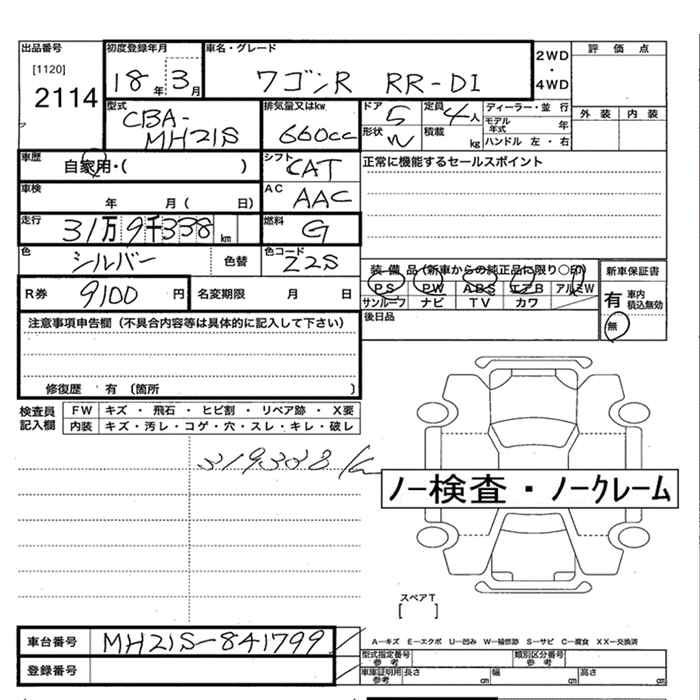 出品番号 初度登録年月 車名・グレード 評価点
[1120]
2114 18年 3月 ワゴンR RR-DI 2WD・4WD
型式 排気量又はkw ドア 5 定員 4人 ディーラー・並 行 外装 内装
CBA-
MH21S 660cc 形状 W 積載 kg モデル年式 年
ハンドル 左・右
車歴 自家用・( ) シフト CAT 正常に機能するセールスポイント
車検 年 月( 日) AC AAC
走行 31万9千338km 燃料 G
色 シルバー 色替 色コード Z2S 装備品(新車からの純正品に限り○印) 新車保証書
R券 9100円 名変期限 月 日 PS PW ABS エアB アルミW 有 車内積込無効
サンルーフ ナビ TV カワ
注意事項申告欄(不具合内容等は具体的に記入して下さい) 後日品 無
修復歴・有〔箇所 〕
検査員記入欄 FW キズ・飛石・ヒビ割・リペア跡・X要
内装 キズ・汚レ・コゲ・穴・スレ・キレ・破レ
319338km
ノー検査・ノークレーム
スペアT
[ ]
車台番号 MH21S-841799 A-キズ E-エクボ U-凹み W-補修跡 S-サビ C-腐食 XX-交換済
型式指定番号 参考 類別区分番号 参考
登録番号 車庫証明用 参考 長さ cm 幅 cm 高さ cm